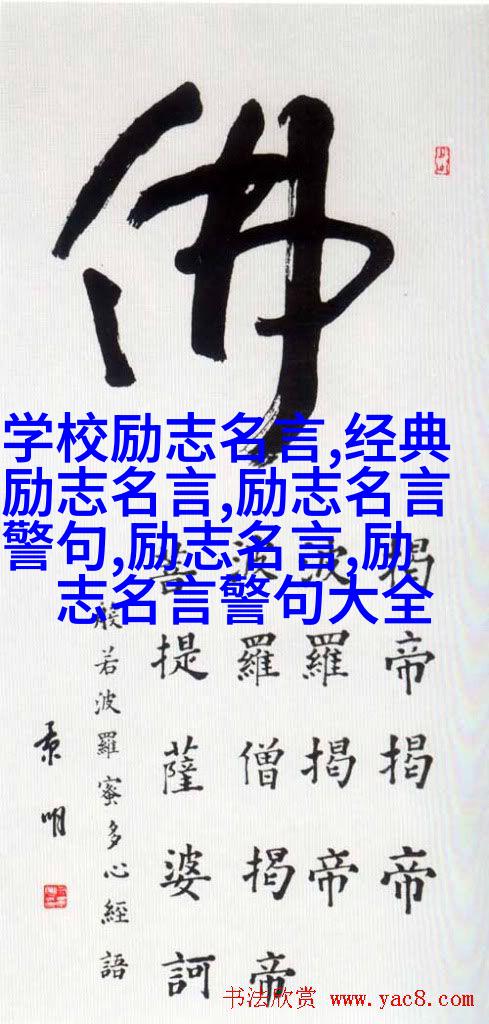 佛
学校励志名言,经典
励志名言,励志名言
警句,励志名言,励
志名言警句大全
揭帝揭帝
波羅揭帝
波羅僧揭帝
菩提薩婆訶
般若波羅蜜多心經語
明
书法欣赏 www.yac8.com